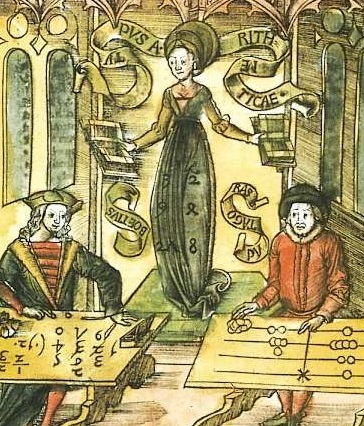 TY
PVS A·
RITH
ME
TICAE·
BOETIVS
PY
TAGO
RAS
3 2
9 4
27 8